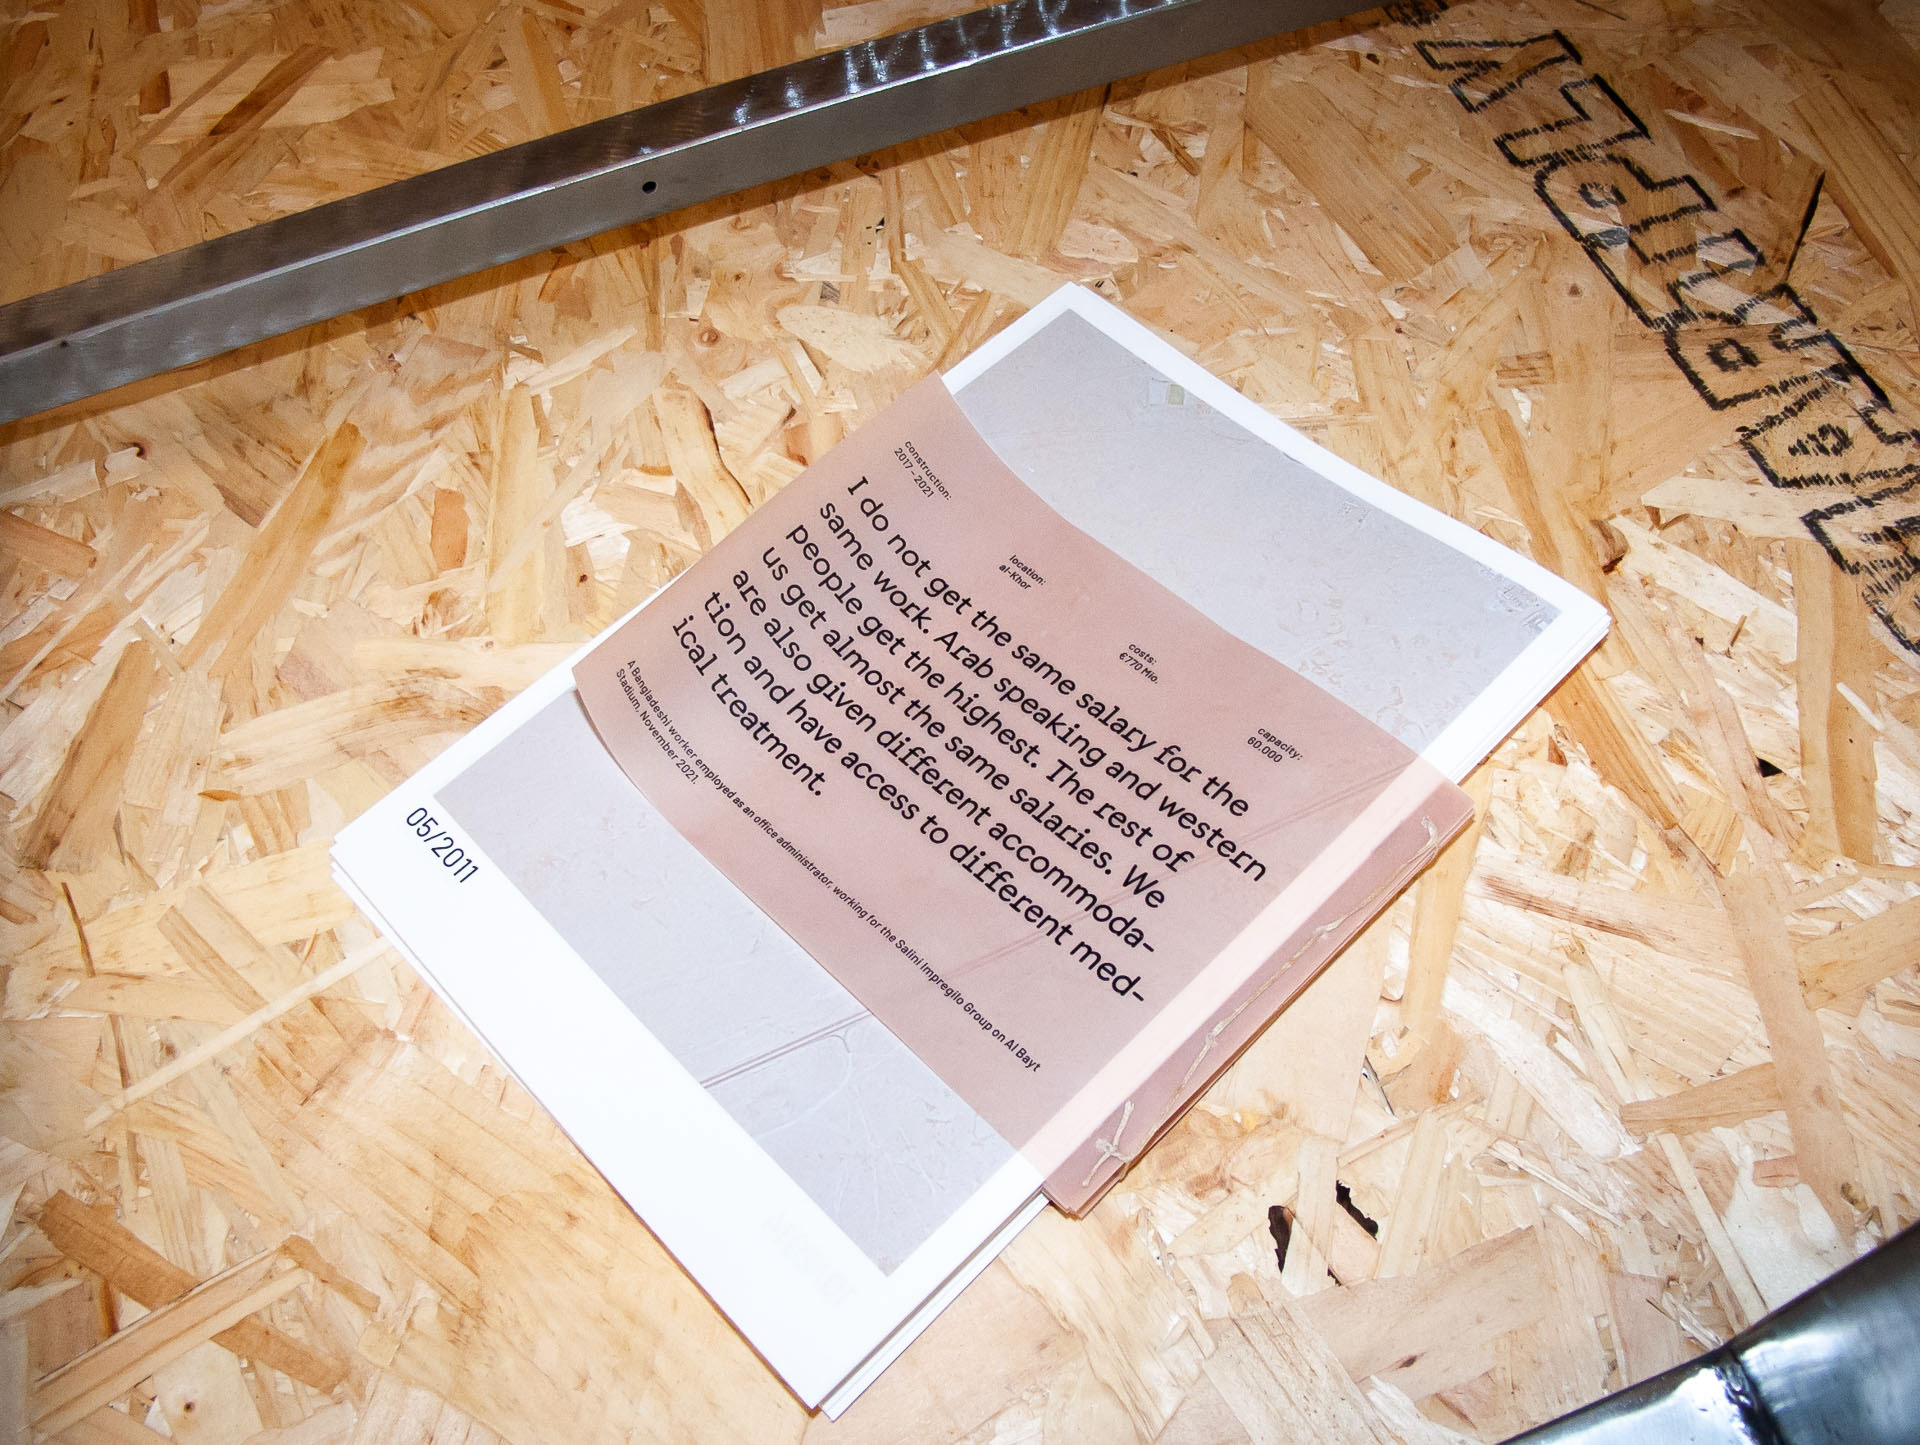 construction:
2017 – 2021
location:
al-Khor
costs:
€770 Mio.
capacity:
60.000
I do not get the same salary for the
same work. Arab speaking and western
people get the highest. The rest of
us get almost the same salaries. We
are also given different accommoda-
tion and have access to different med-
ical treatment.
A Bangladeshi worker employed as an office administrator, working for the Salini Impregilo Group on Al Bayt
Stadium, November 2021.
05/2011